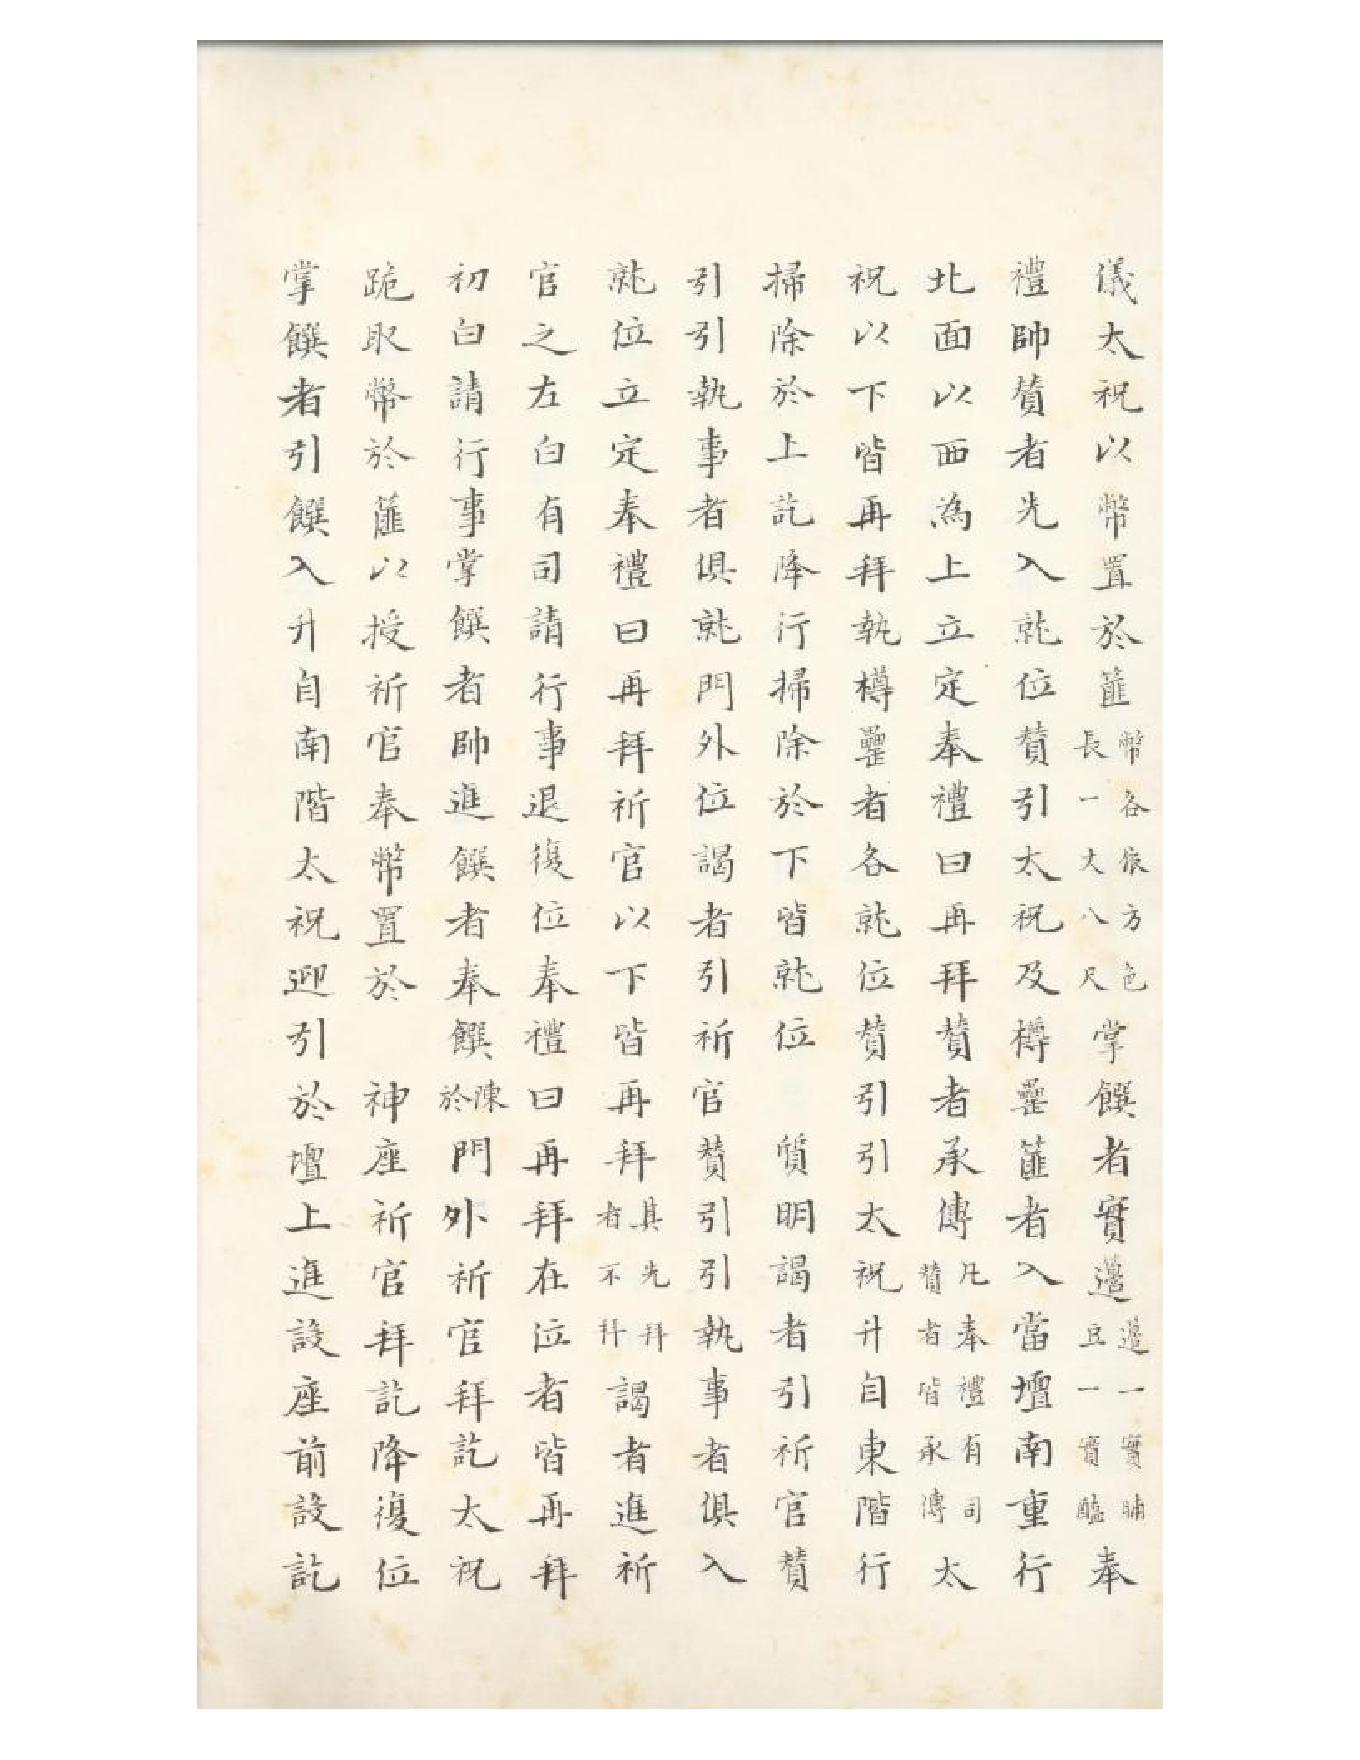 儀太祝以幣置於篚幣各依方色長一丈八尺掌饌者實籩籩一實脯豆一實醢奉
禮帥賛者先入就位賛引太祝及樽罍篚者入當壇南重行
北面以西為上立定奉禮曰再拜賛者承傳凡奉禮有司賛者皆承傳太
祝以下皆再拜執樽罍者各就位賛引引太祝升自東階行
掃除於上訖降行掃除於下皆就位　質明謁者引祈官賛
引引執事者俱就門外位謁者引祈官賛引引執事者俱入
就位立定奉禮曰再拜祈官以下皆再拜其先拜者不拜謁者進祈
官之左白有司請行事退復位奉禮曰再拜在位者皆再拜
初白請行事掌饌者帥進饌者奉饌陳於門外祈官拜訖太祝
跪取幣於篚以授祈官奉幣置於　神座祈官拜訖降復位
掌饌者引饌入升自南階太祝迎引於壇上進設座前設訖